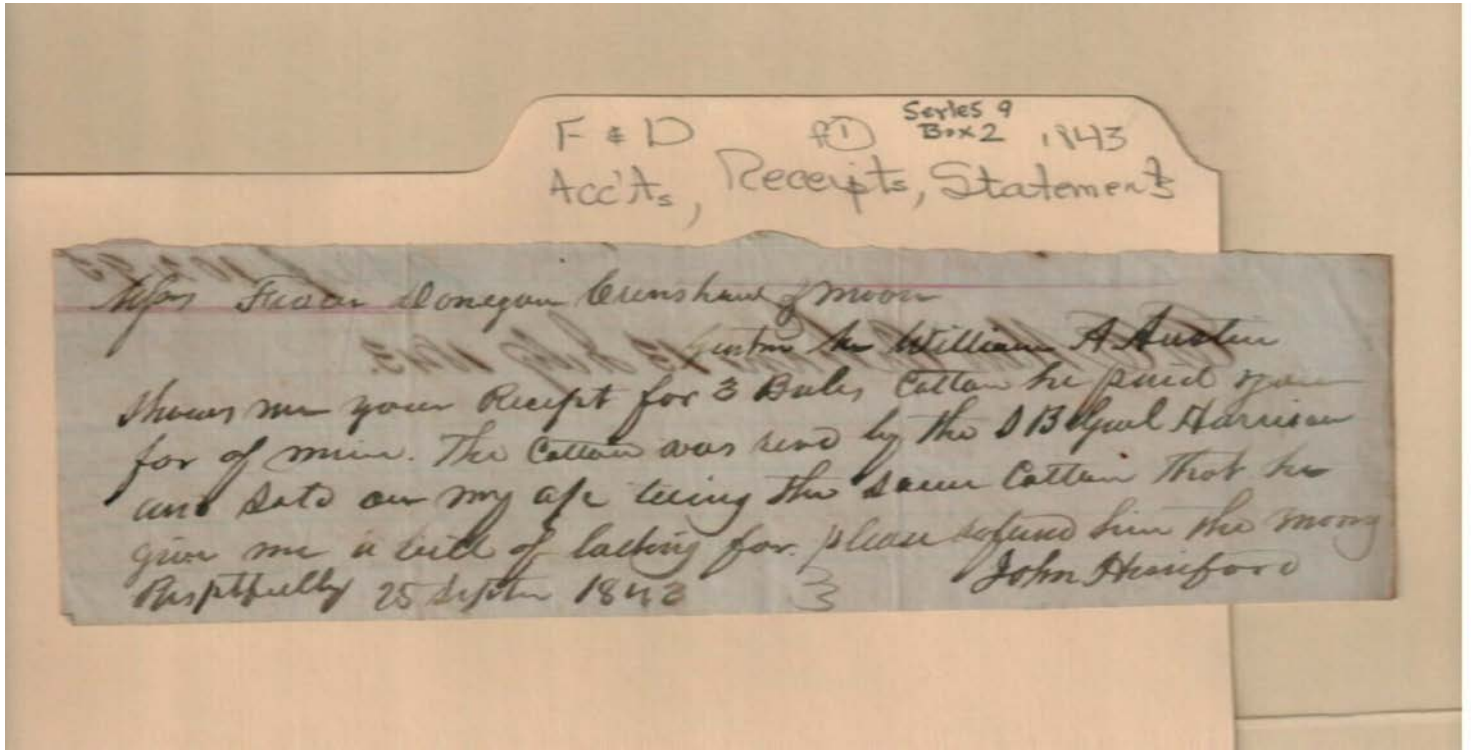 F & D Series 9
Box 2 1843
Acc'ts, Receipts, Statements
Messrs Donegan Crenshaw & Moon
William A Austin
Shows me your Receipt for 3 Bales Cotton he paid you
for of mine. The Cotton was send by the S B Genl Harrison
and Sold on my a/c being the same Cotton that he
give me a bill of lading for. please refund him the mony
Resptfully 25 Septr 1843 3 John Hereford